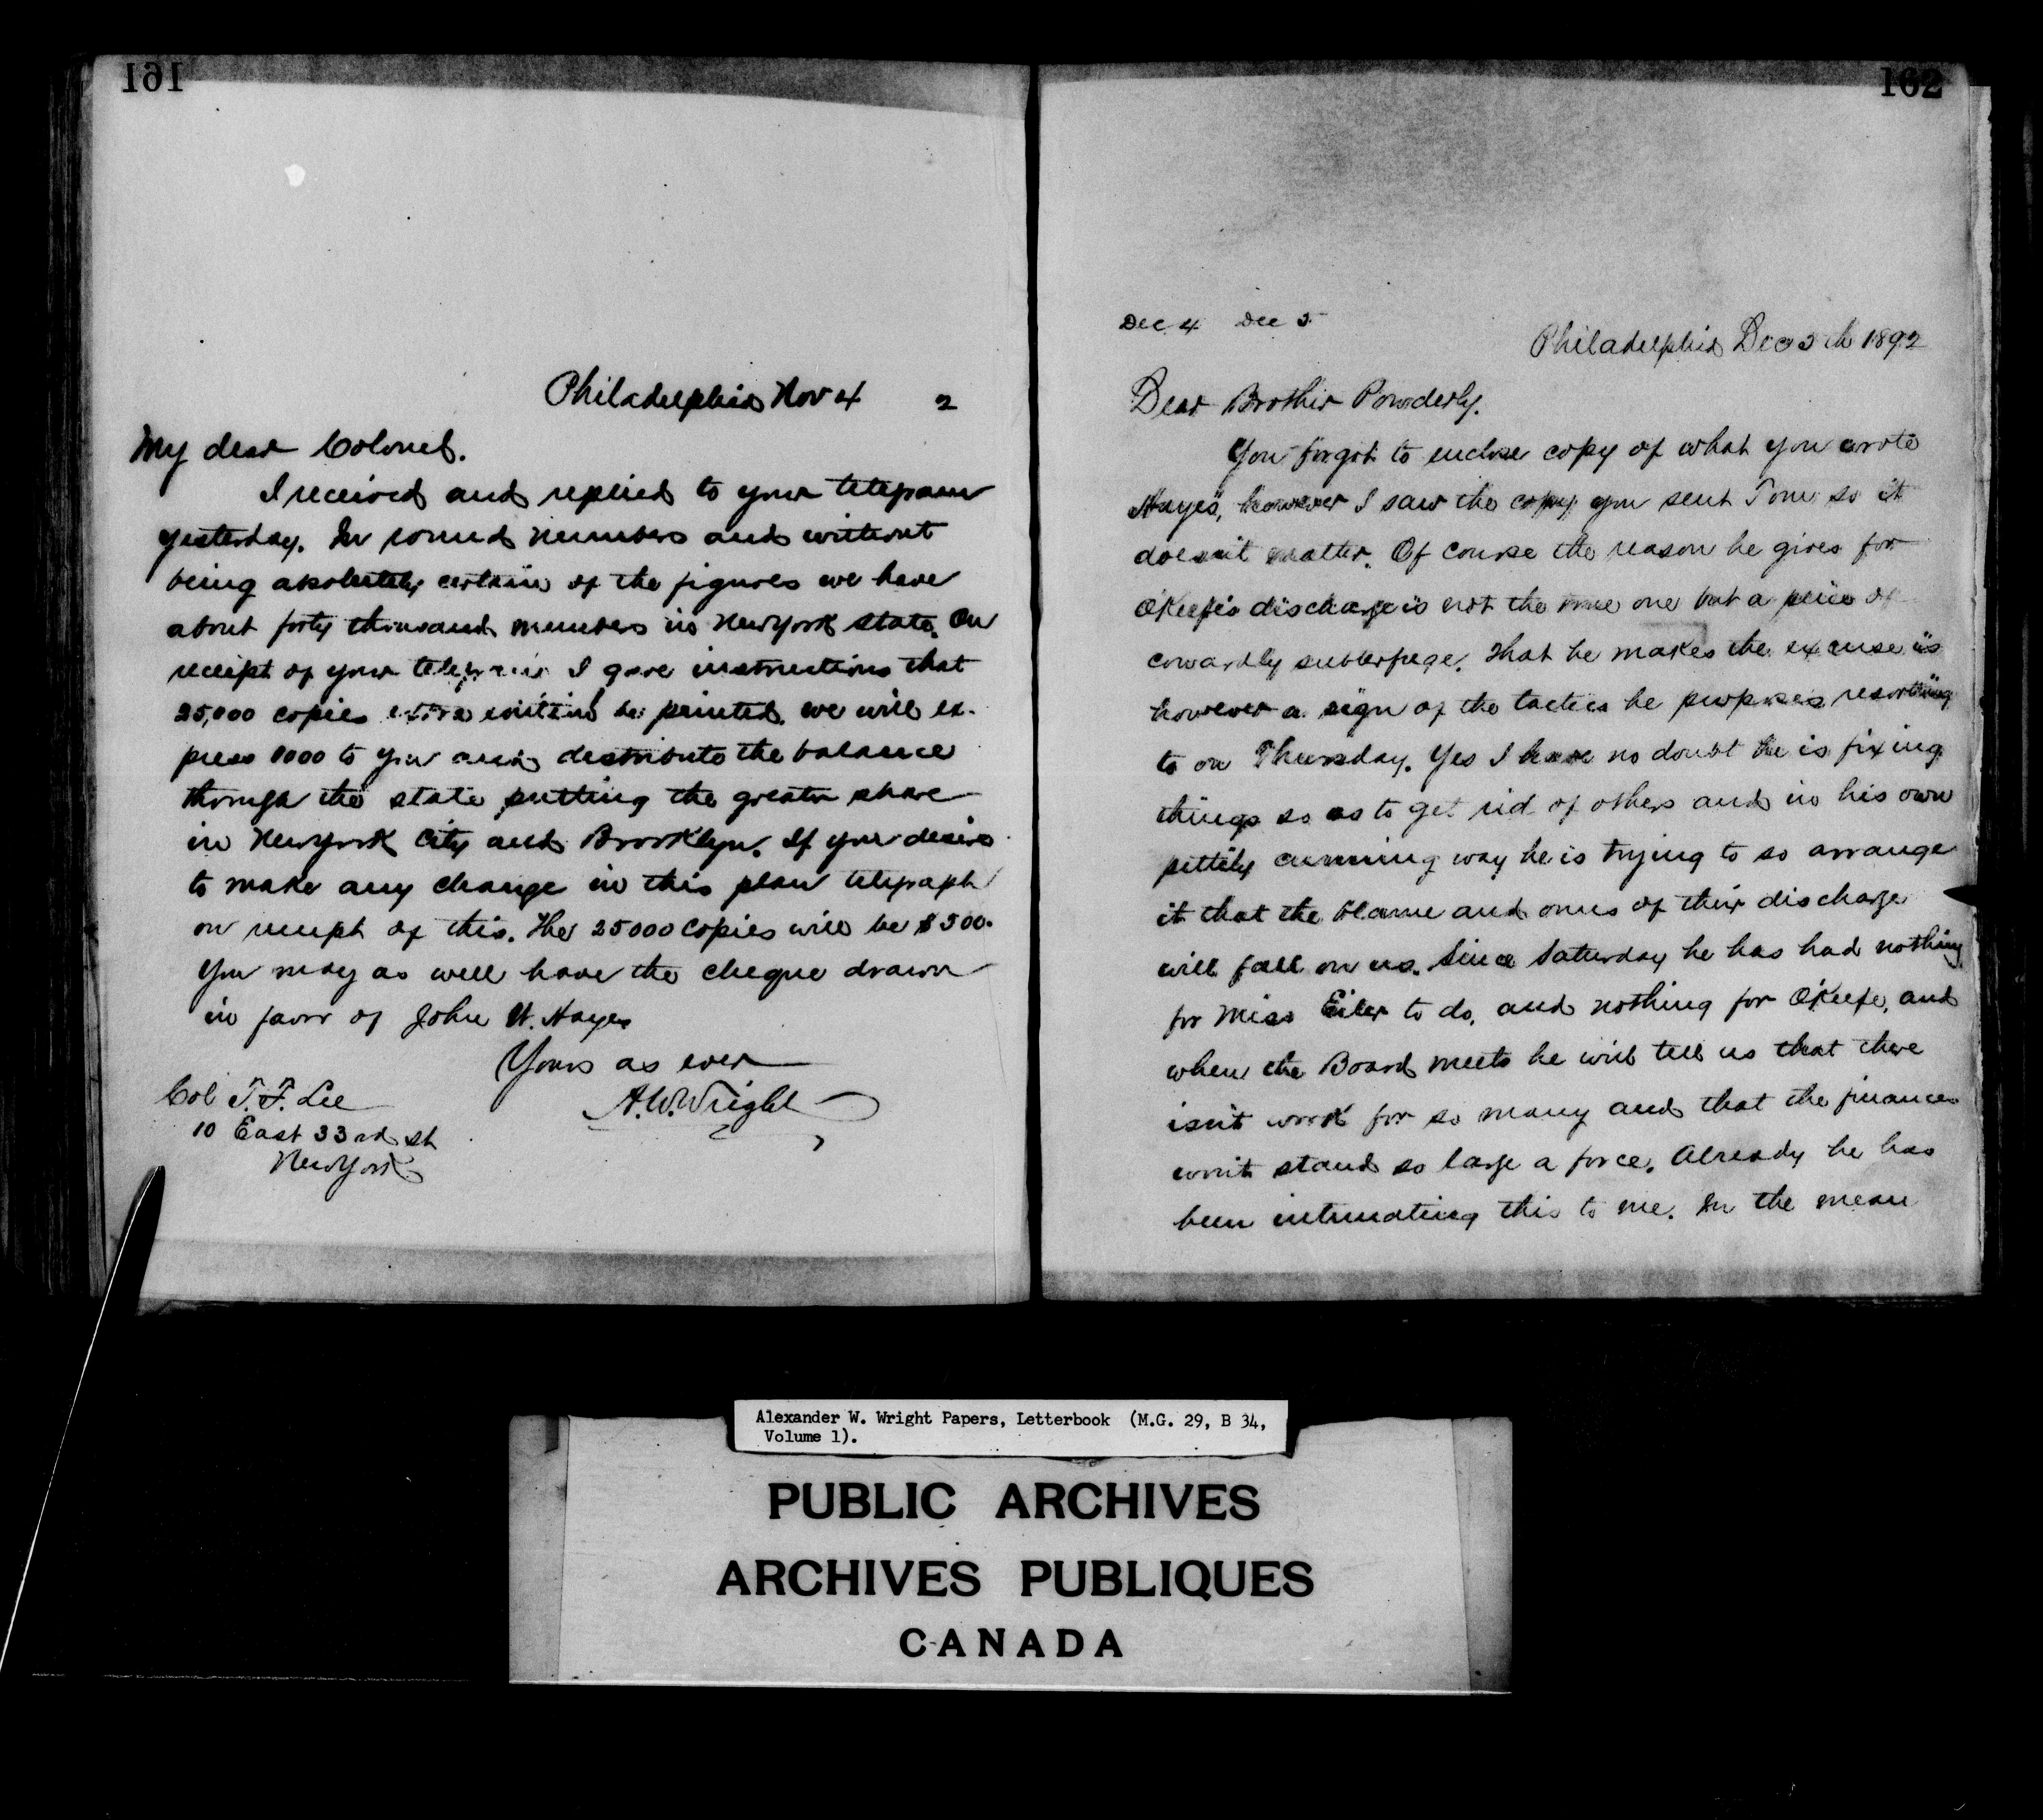 161
Philadelphia Nov 4 2
My dear Colonel.
I received and replied to your telegram
yesterday. In round numbers and without
being absolutely certain of the figures we have
about forty thousand members in New York state. On
receipt of your telegram I gave instructions that
25,000 copies extra edition be printed. we will ex-
press 1000 to you and distribute the balance
through the state putting the greater share
in New York City and Brooklyn. If you desire
to make any change in this plan telegraph
on receipt of this. The 25000 copies will be $500.
You may as well have the cheque drawn
in favor of John W. Hayes
Yours as ever
A.W. Wright
Col T.F. Lee
10 East 33rd st
New York
162
Dec 4 Dec 5
Philadelphia Dec 5th 1892
Dear Brother Powderly.
You forgot to enclose copy of what you wrote
Hayes, however I saw the copy you sent Tom so it
doesn't matter. Of course the reason he gives for
O'Keefe's discharge is not the true one but a peice of
cowardly subterfuge. That he makes the excuse is
however a sign of the tactics he proposes resorting
to on Thursday. Yes I have no doubt he is fixing
things so as to get rid of others and in his own
pettily cunning way he is trying to so arrange
it that the blame and onus of their discharge
will fall on us. Since Saturday he has had nothing
for Miss Eiler to do, and nothing for O'Keefe, and
when the Board meets he will tell us that there
isn't work for so many and that the finances
won't stand so large a force. Already he has
been intimating this to me. In the mean
Alexander W. Wright Papers, Letterbook (M.G. 29, B 34,
Volume 1).
PUBLIC ARCHIVES
ARCHIVES PUBLIQUES
CANADA